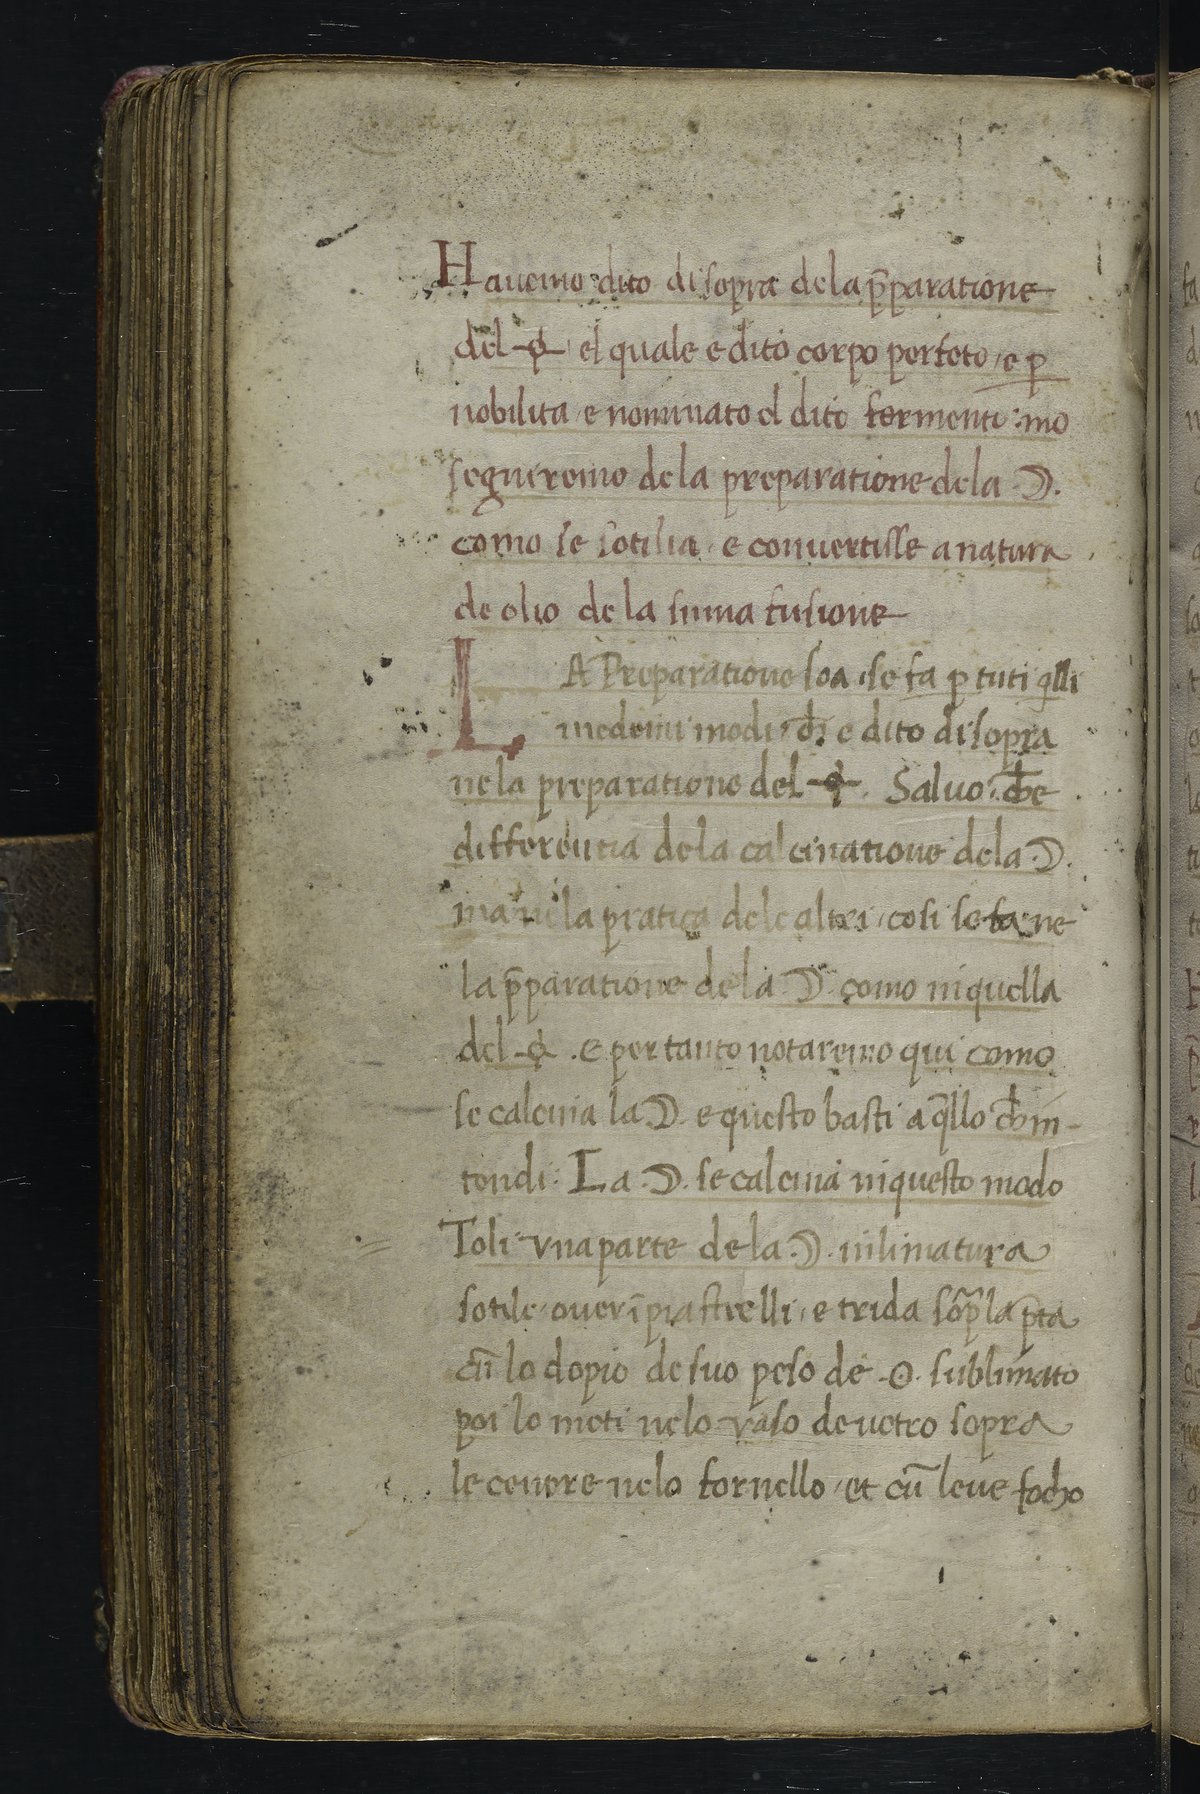 Havemo dito disopra dela p̄paratione
del ☉ el quale e dito corpo perfeto, e ꝑ
nobilita, e nominato el dito fermento: mo
seguiremo de la preparatione dela ☽.
como se sotilia, e convertisse a natura
de olio de la suma fusione
LA Preparatione soa, se fa ꝑ tuti q̄lli
medemi modi, ch̄ e dito disopra
ne la preparatione del ☉. Salvo, ch̄e
differentia de la calcinatione dela ☽.
ma ne la pratica dele altri, cosi se fa, ne
la p̄paratione de la ☽ como in quella
del ☉. e per tanto notaremo qui como
se calcina la ☽. e questo basti a q̄llo ch̄ in-
tendi: La ☽. se calcina in questo modo
Toli una parte de la ☽. in limatura
sotile, over ī piastrelli, e trida sop̄ la p̄ta
cū lo dopio de suo peso de sublimato
poi lo meti nelo vaso de vetro sopra
le cenere nelo fornello, et cū leve focho